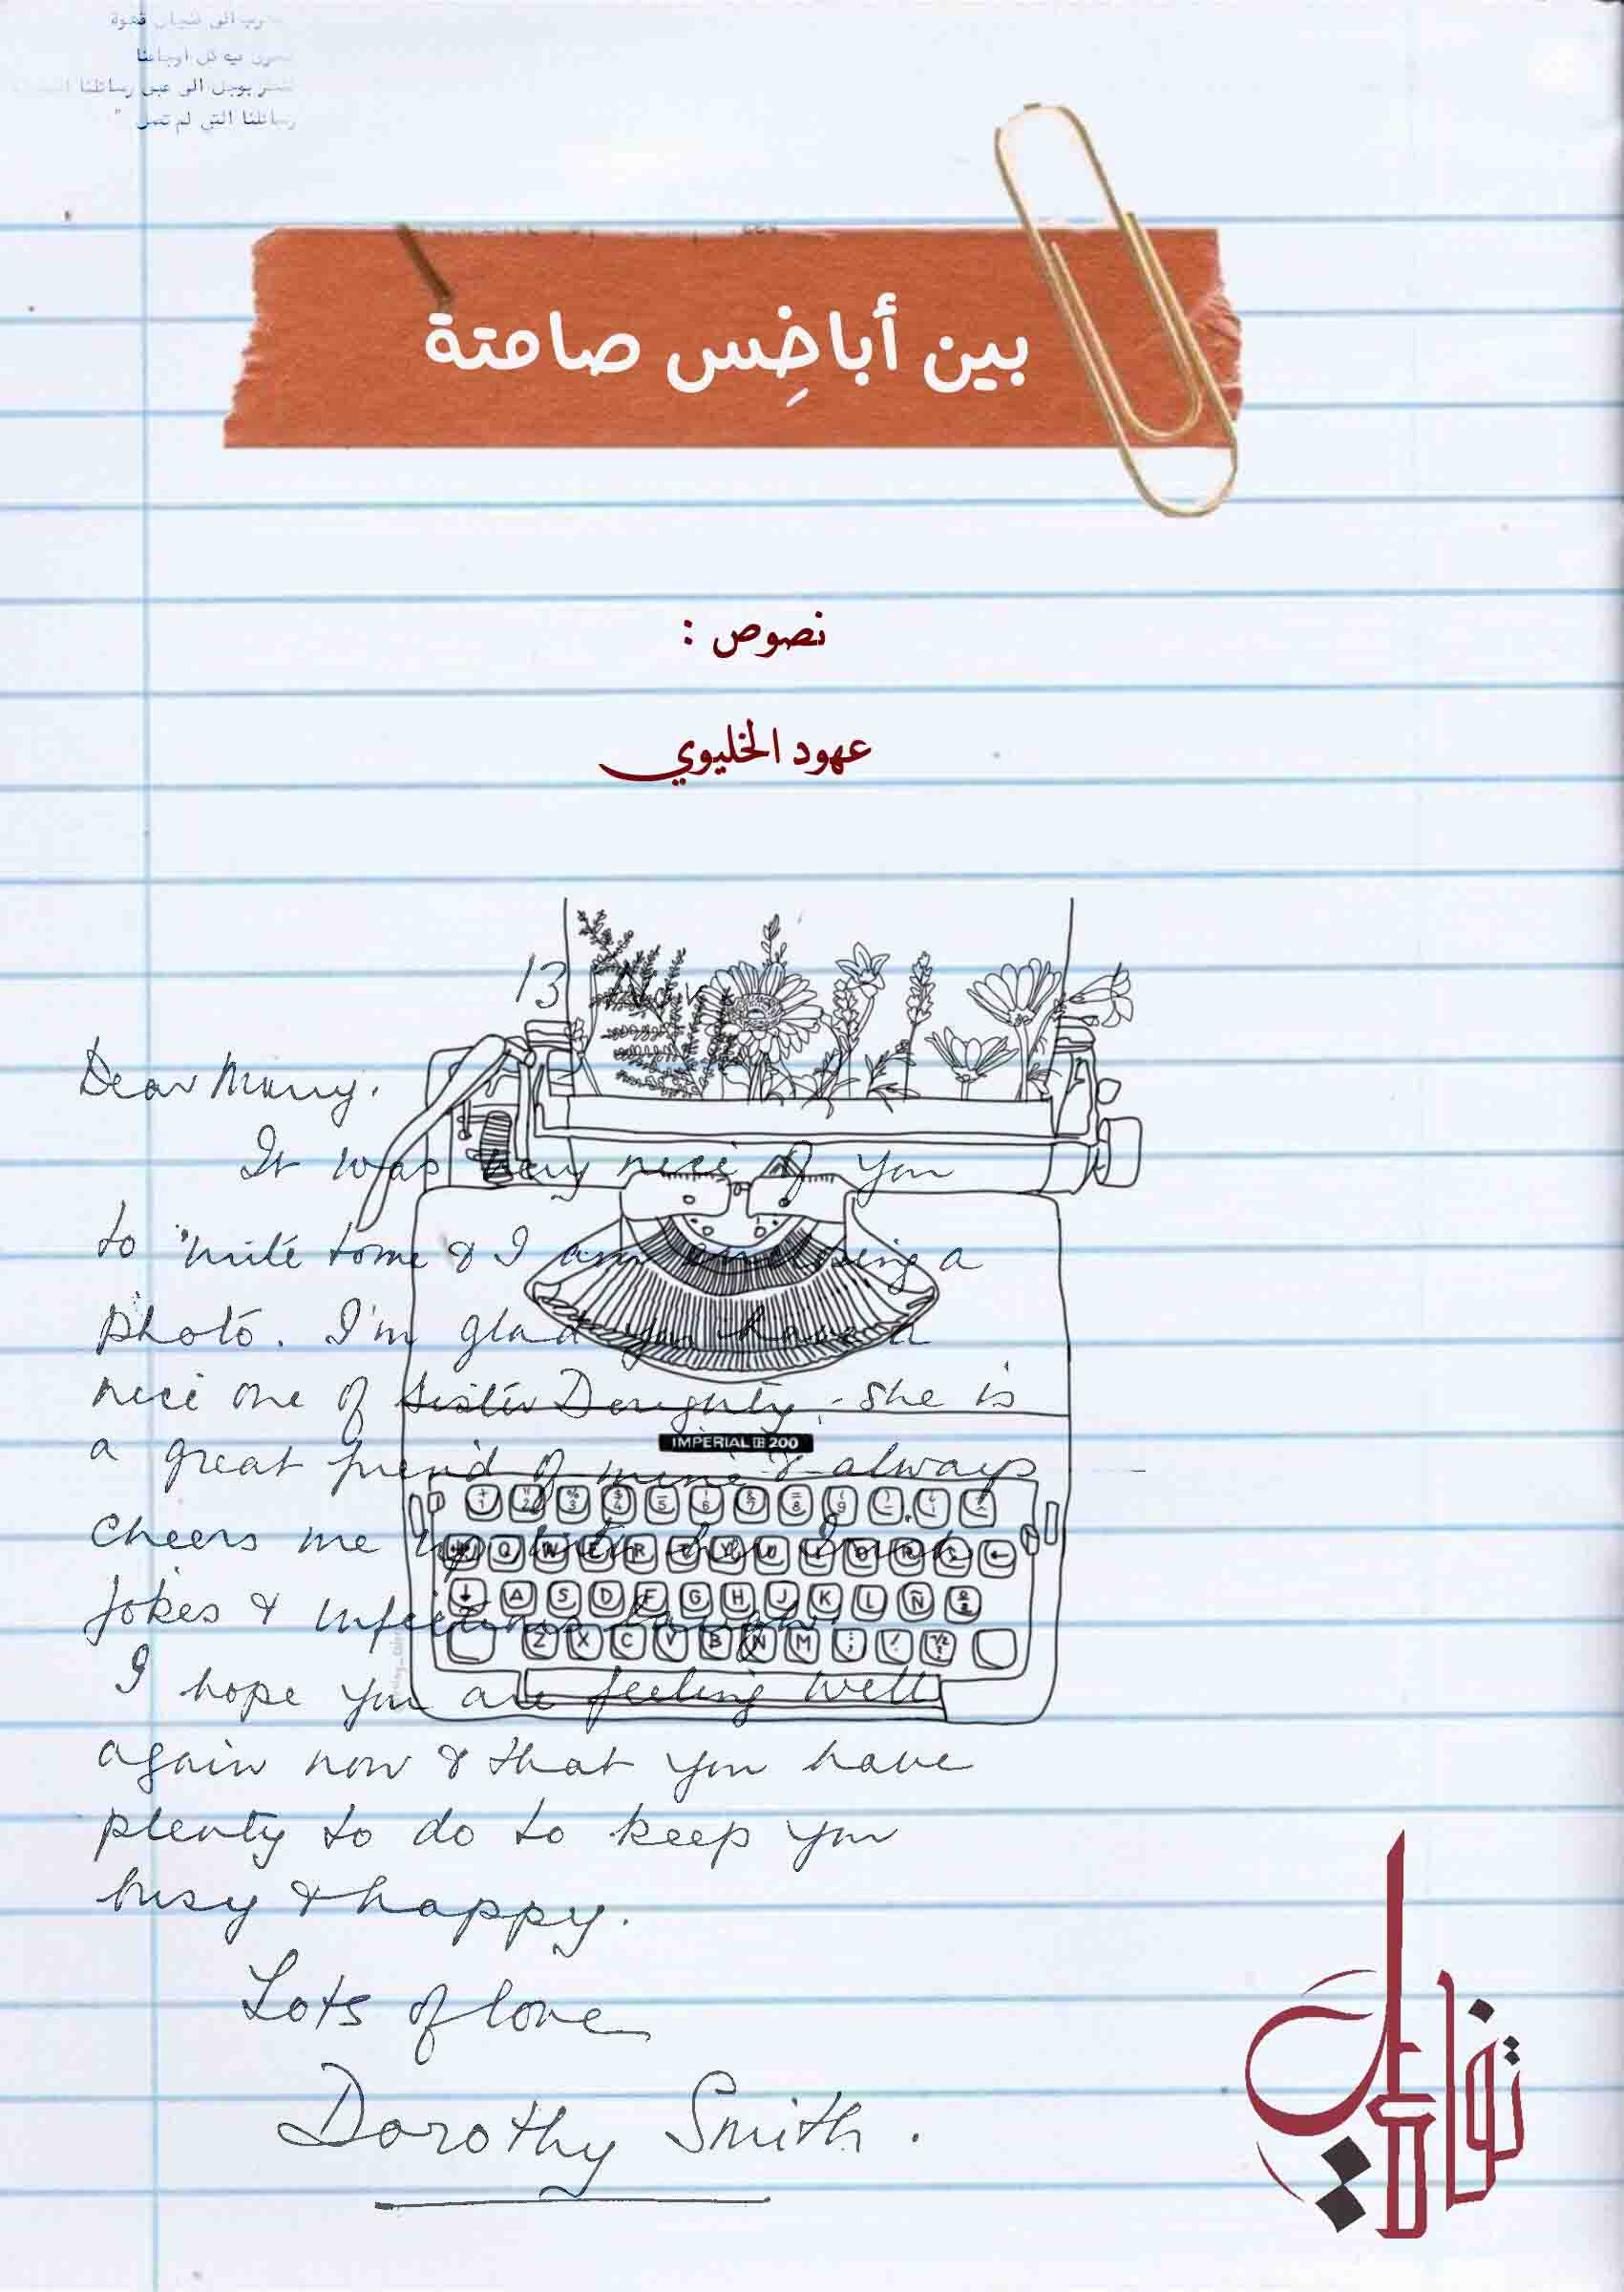 فنجان قهوة
فيه كل أوجاعنا
بوجل الى عين رسائلنا
رسائلنا التي لم تصل "
بين أباضِس صامتة
نصوص :
عهود الخليوي
13 Nov
Dear Mary.
It was very nice of you
to write to me & I am enclosing a
photo. I'm glad you have a
nice one of Sister Doughty, - she is
a great friend of mine & always
cheers me up with her Irish
jokes & infectious laugh.
I hope you are feeling well
again now & that you have
plenty to do to keep you
busy & happy.
Lots of love
Dorothy Smith.
IMPERIAL 200
1 2 3 4 5 6 7 8 9
Q W E R T Y U
A S D F G H J K L Ñ
Z X C V B N M ;